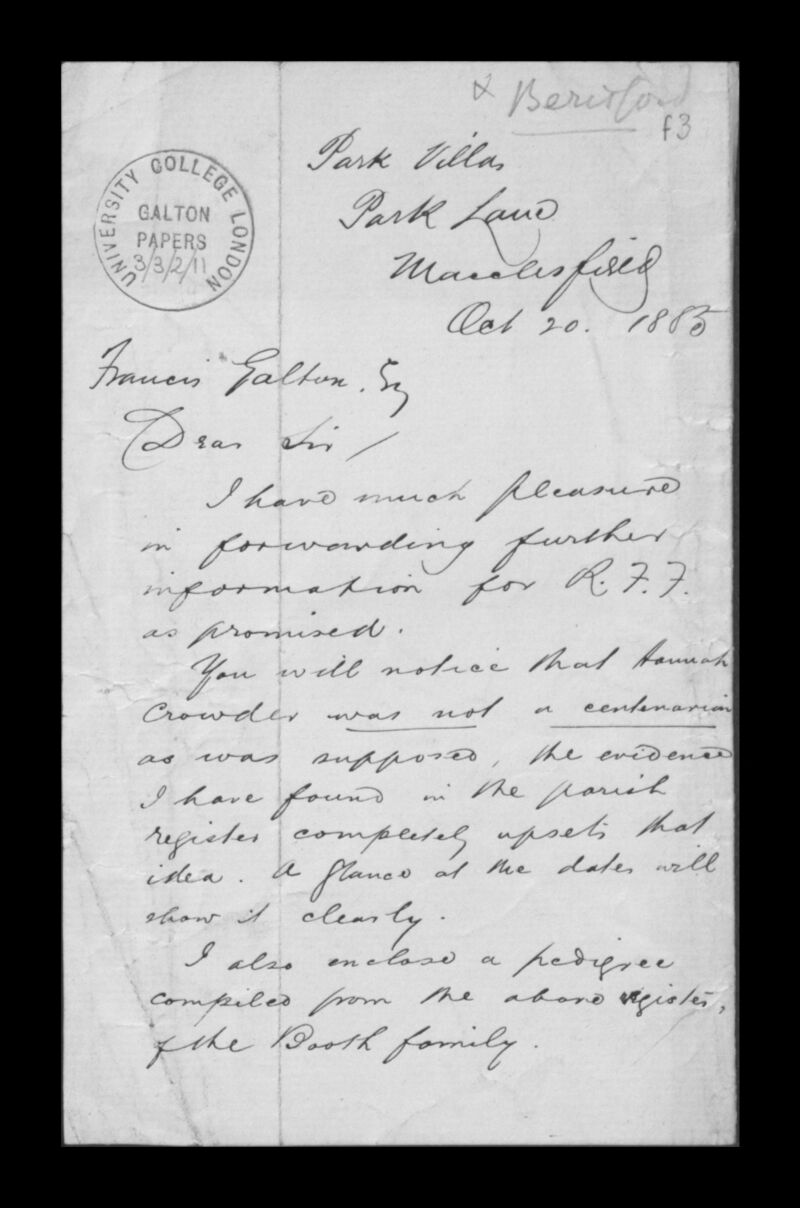 x Beresford
f3
UNIVERSITY COLLEGE LONDON
GALTON
PAPERS
3/3/2/11
Park Villas
Park Lane
Macclesfield
Oct 20. 1885
Francis Galton. Esq
Dear Sir/
I have much pleasure
in forwarding further
information for R. F. F.
as promised.
You will notice that Hannah
Crowder was not a centenarian
as was supposed, the evidence
I have found in the parish
register completely upsets that
idea. A glance at the dates will
show it clearly.
I also enclose a pedigree
compiled from the above register,
of the Booth family.